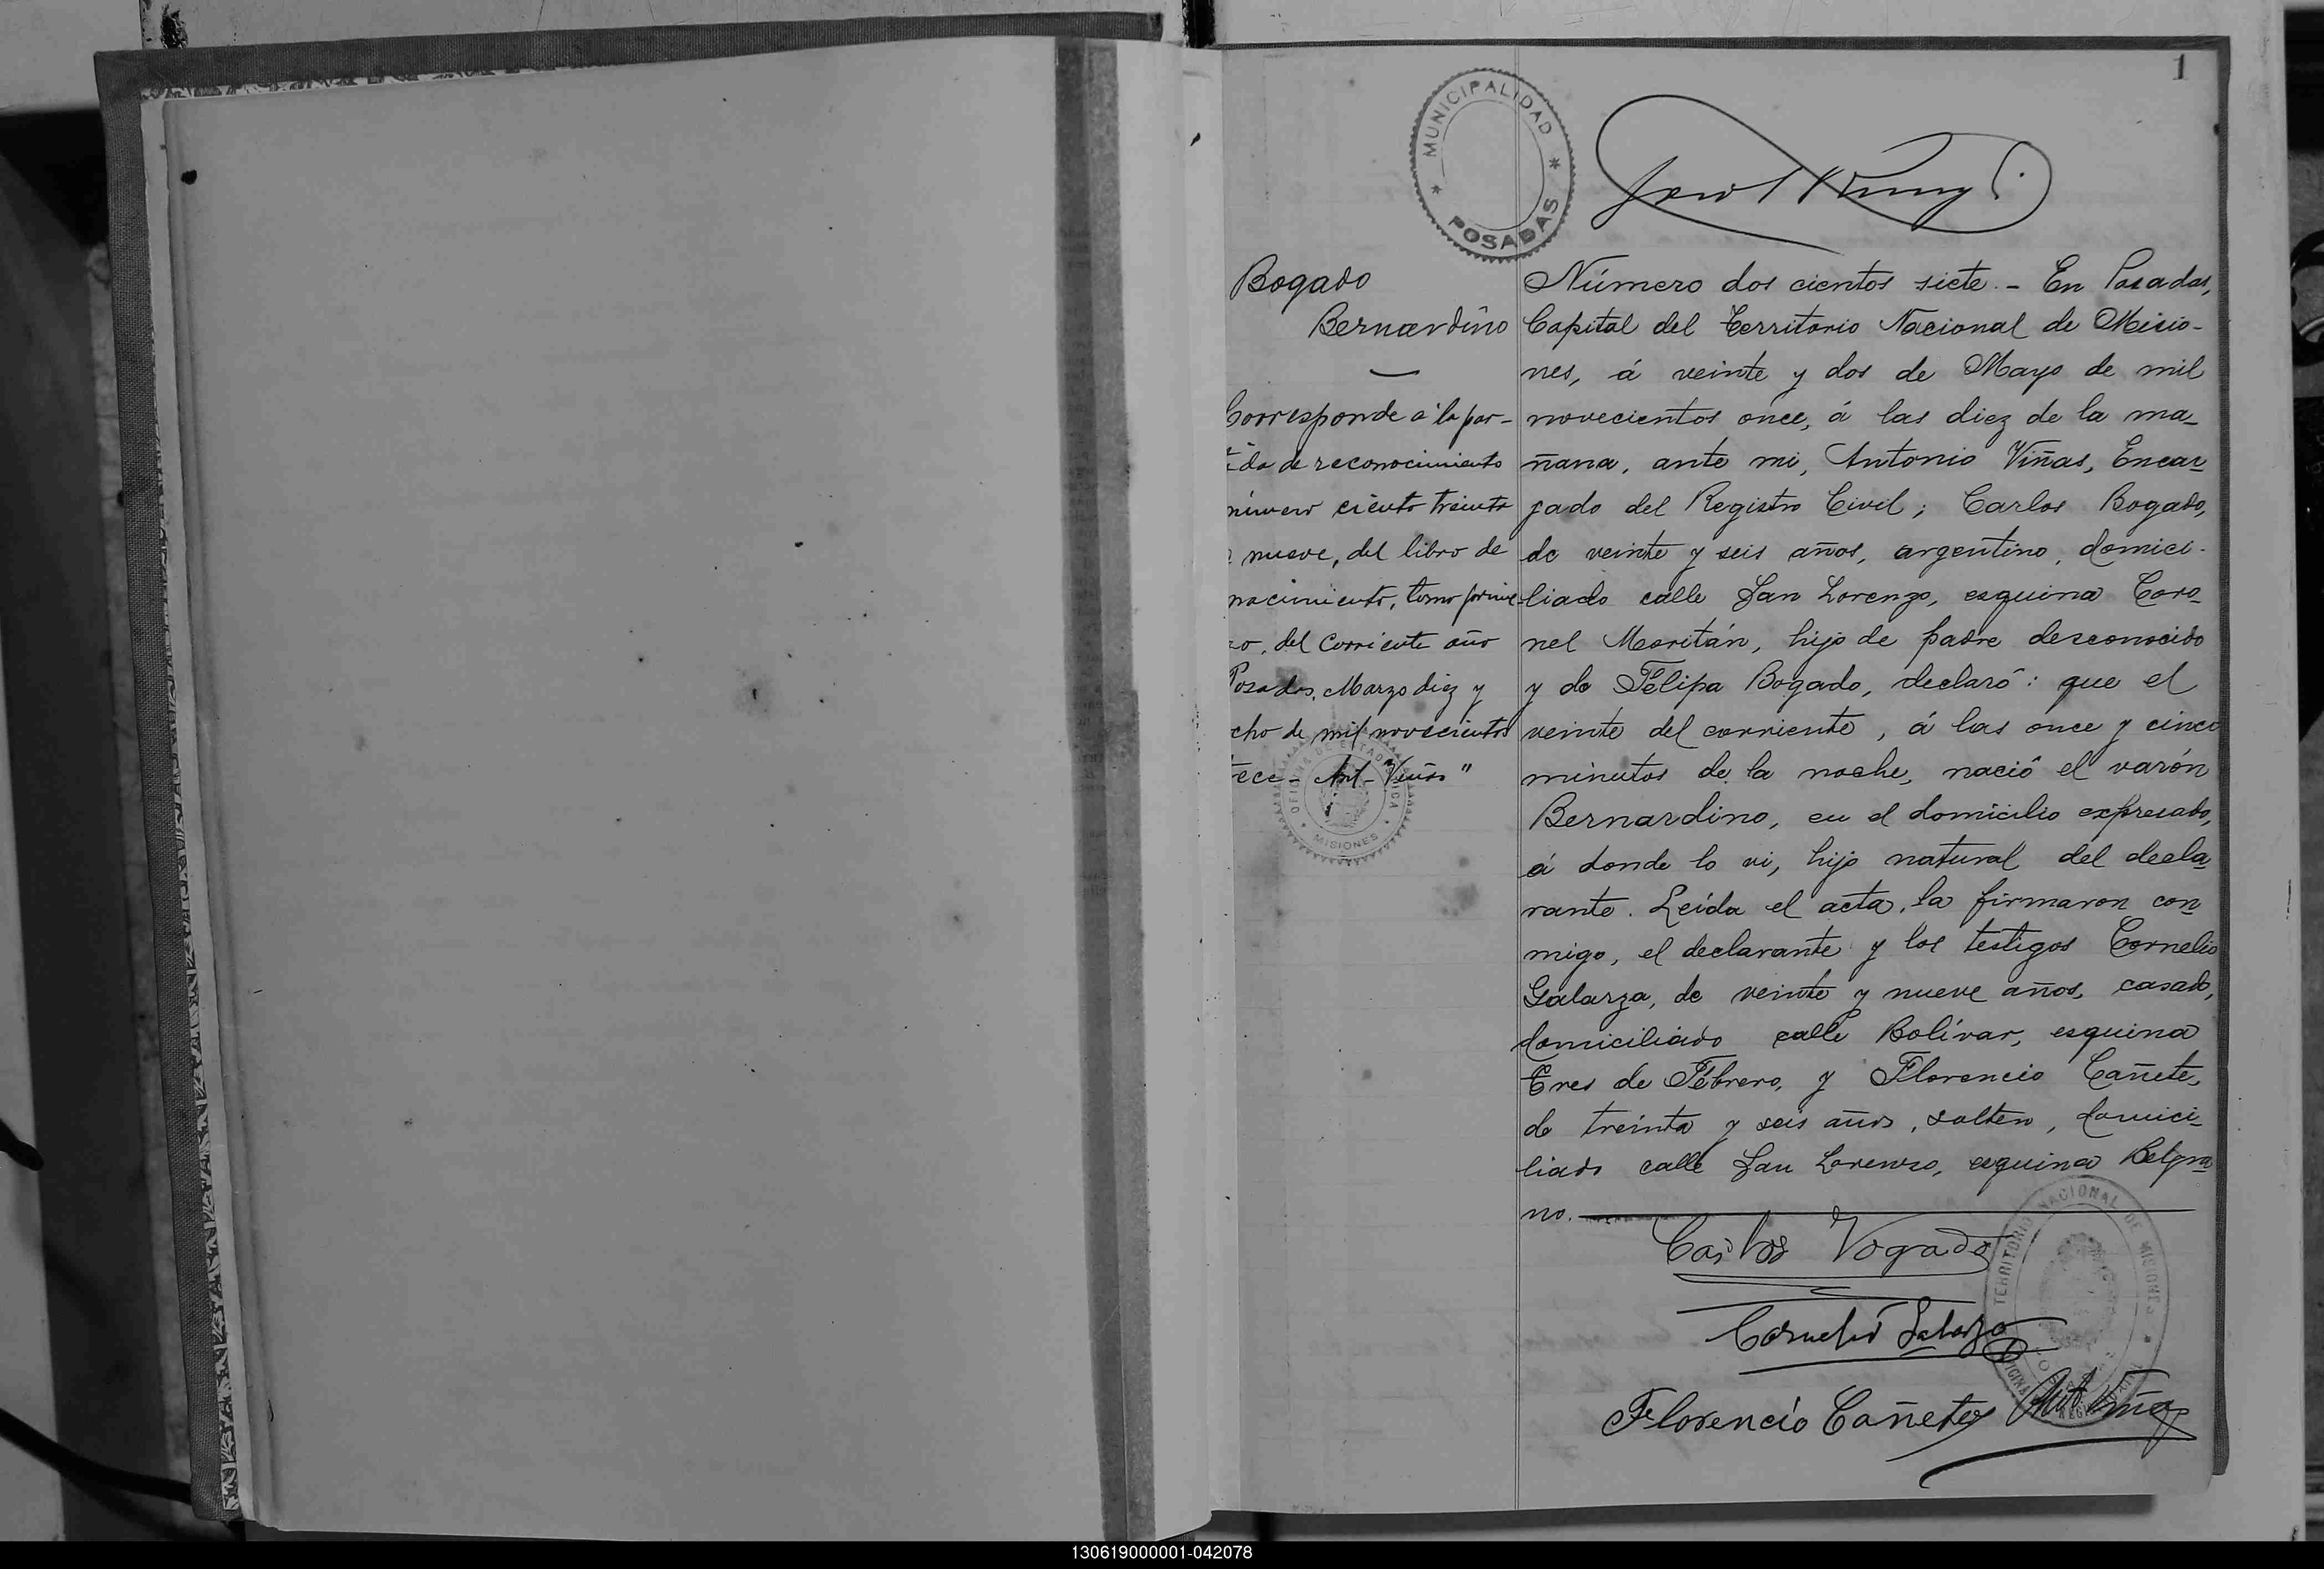 1
MUNICIPALIDAD
POSADAS
Bogado
Bernardino
Corresponde a la par-
da de reconocimiento
número ciento treinta
nueve, del libro de
nacimiento, tomo prime-
ro, del corriente año
Posadas, Marzo diez y
cho de mil novecientos
ece - Ant - Viñas"
OFICINA DE ESTADISTICA
MISIONES
Número dos cientos siete. - En Posadas,
Capital del Territorio Nacional de Misio-
nes, á veinte y dos de Mayo de mil
novecientos once, á las diez de la ma-
ñana, ante mi, Antonio Viñas, Encar-
gado del Registro Civil; Carlos Bogado,
de veinte y seis años, argentino, domici-
liado calle San Lorenzo, esquina Coro-
nel Moritán, hijo de padre desconocido
y de Felipa Bogado, declaró: que el
veinte del corriente, á las once y cinco
minutos de la noche, nació el varón
Bernardino, en el domicilio expresado,
á donde lo vi, hijo natural del decla-
rante. Leida el acta, la firmaron con-
migo, el declarante y los testigos Cornelio
Galarza, de veinte y nueve años, casado,
domiciliado calle Bolívar, esquina
Tres de Febrero, y Florencio Cañete,
de treinta y seis años, soltero, domici-
liado calle San Lorenzo, esquina Belgra-
no.
Carlos Vogado
Cornelio Galarza
Florencio Cañete Ant Viñas
TERRITORIO NACIONAL DE MISIONES
130619000001-042078